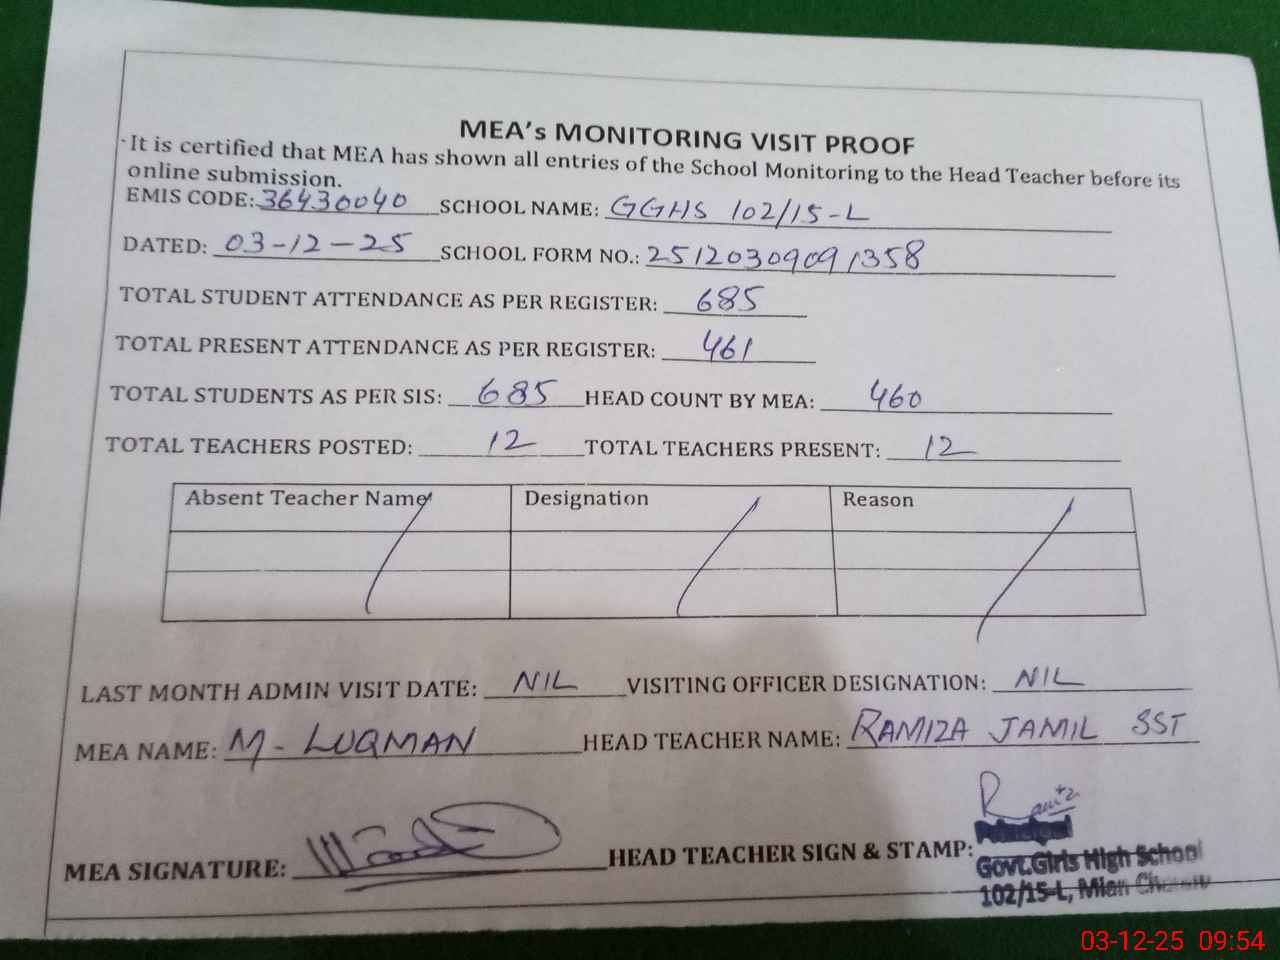 MEA's MONITORING VISIT PROOF
It is certified that MEA has shown all entries of the School Monitoring to the Head Teacher before its
online submission.
EMIS CODE: 36430040 SCHOOL NAME: GGHS 102/15-L
DATED: 03-12-25 SCHOOL FORM NO.: 25120309091358
TOTAL STUDENT ATTENDANCE AS PER REGISTER: 685
TOTAL PRESENT ATTENDANCE AS PER REGISTER: 461
TOTAL STUDENTS AS PER SIS: 685 HEAD COUNT BY MEA: 460
TOTAL TEACHERS POSTED: 12 TOTAL TEACHERS PRESENT: 12
Absent Teacher Name Designation Reason
LAST MONTH ADMIN VISIT DATE: NIL VISITING OFFICER DESIGNATION: NIL
MEA NAME: M. LUQMAN HEAD TEACHER NAME: RAMIZA JAMIL SST
MEA SIGNATURE: HEAD TEACHER SIGN & STAMP:
Principal
Govt.Girls High School
102/15-L, Mian
03-12-25 09:54